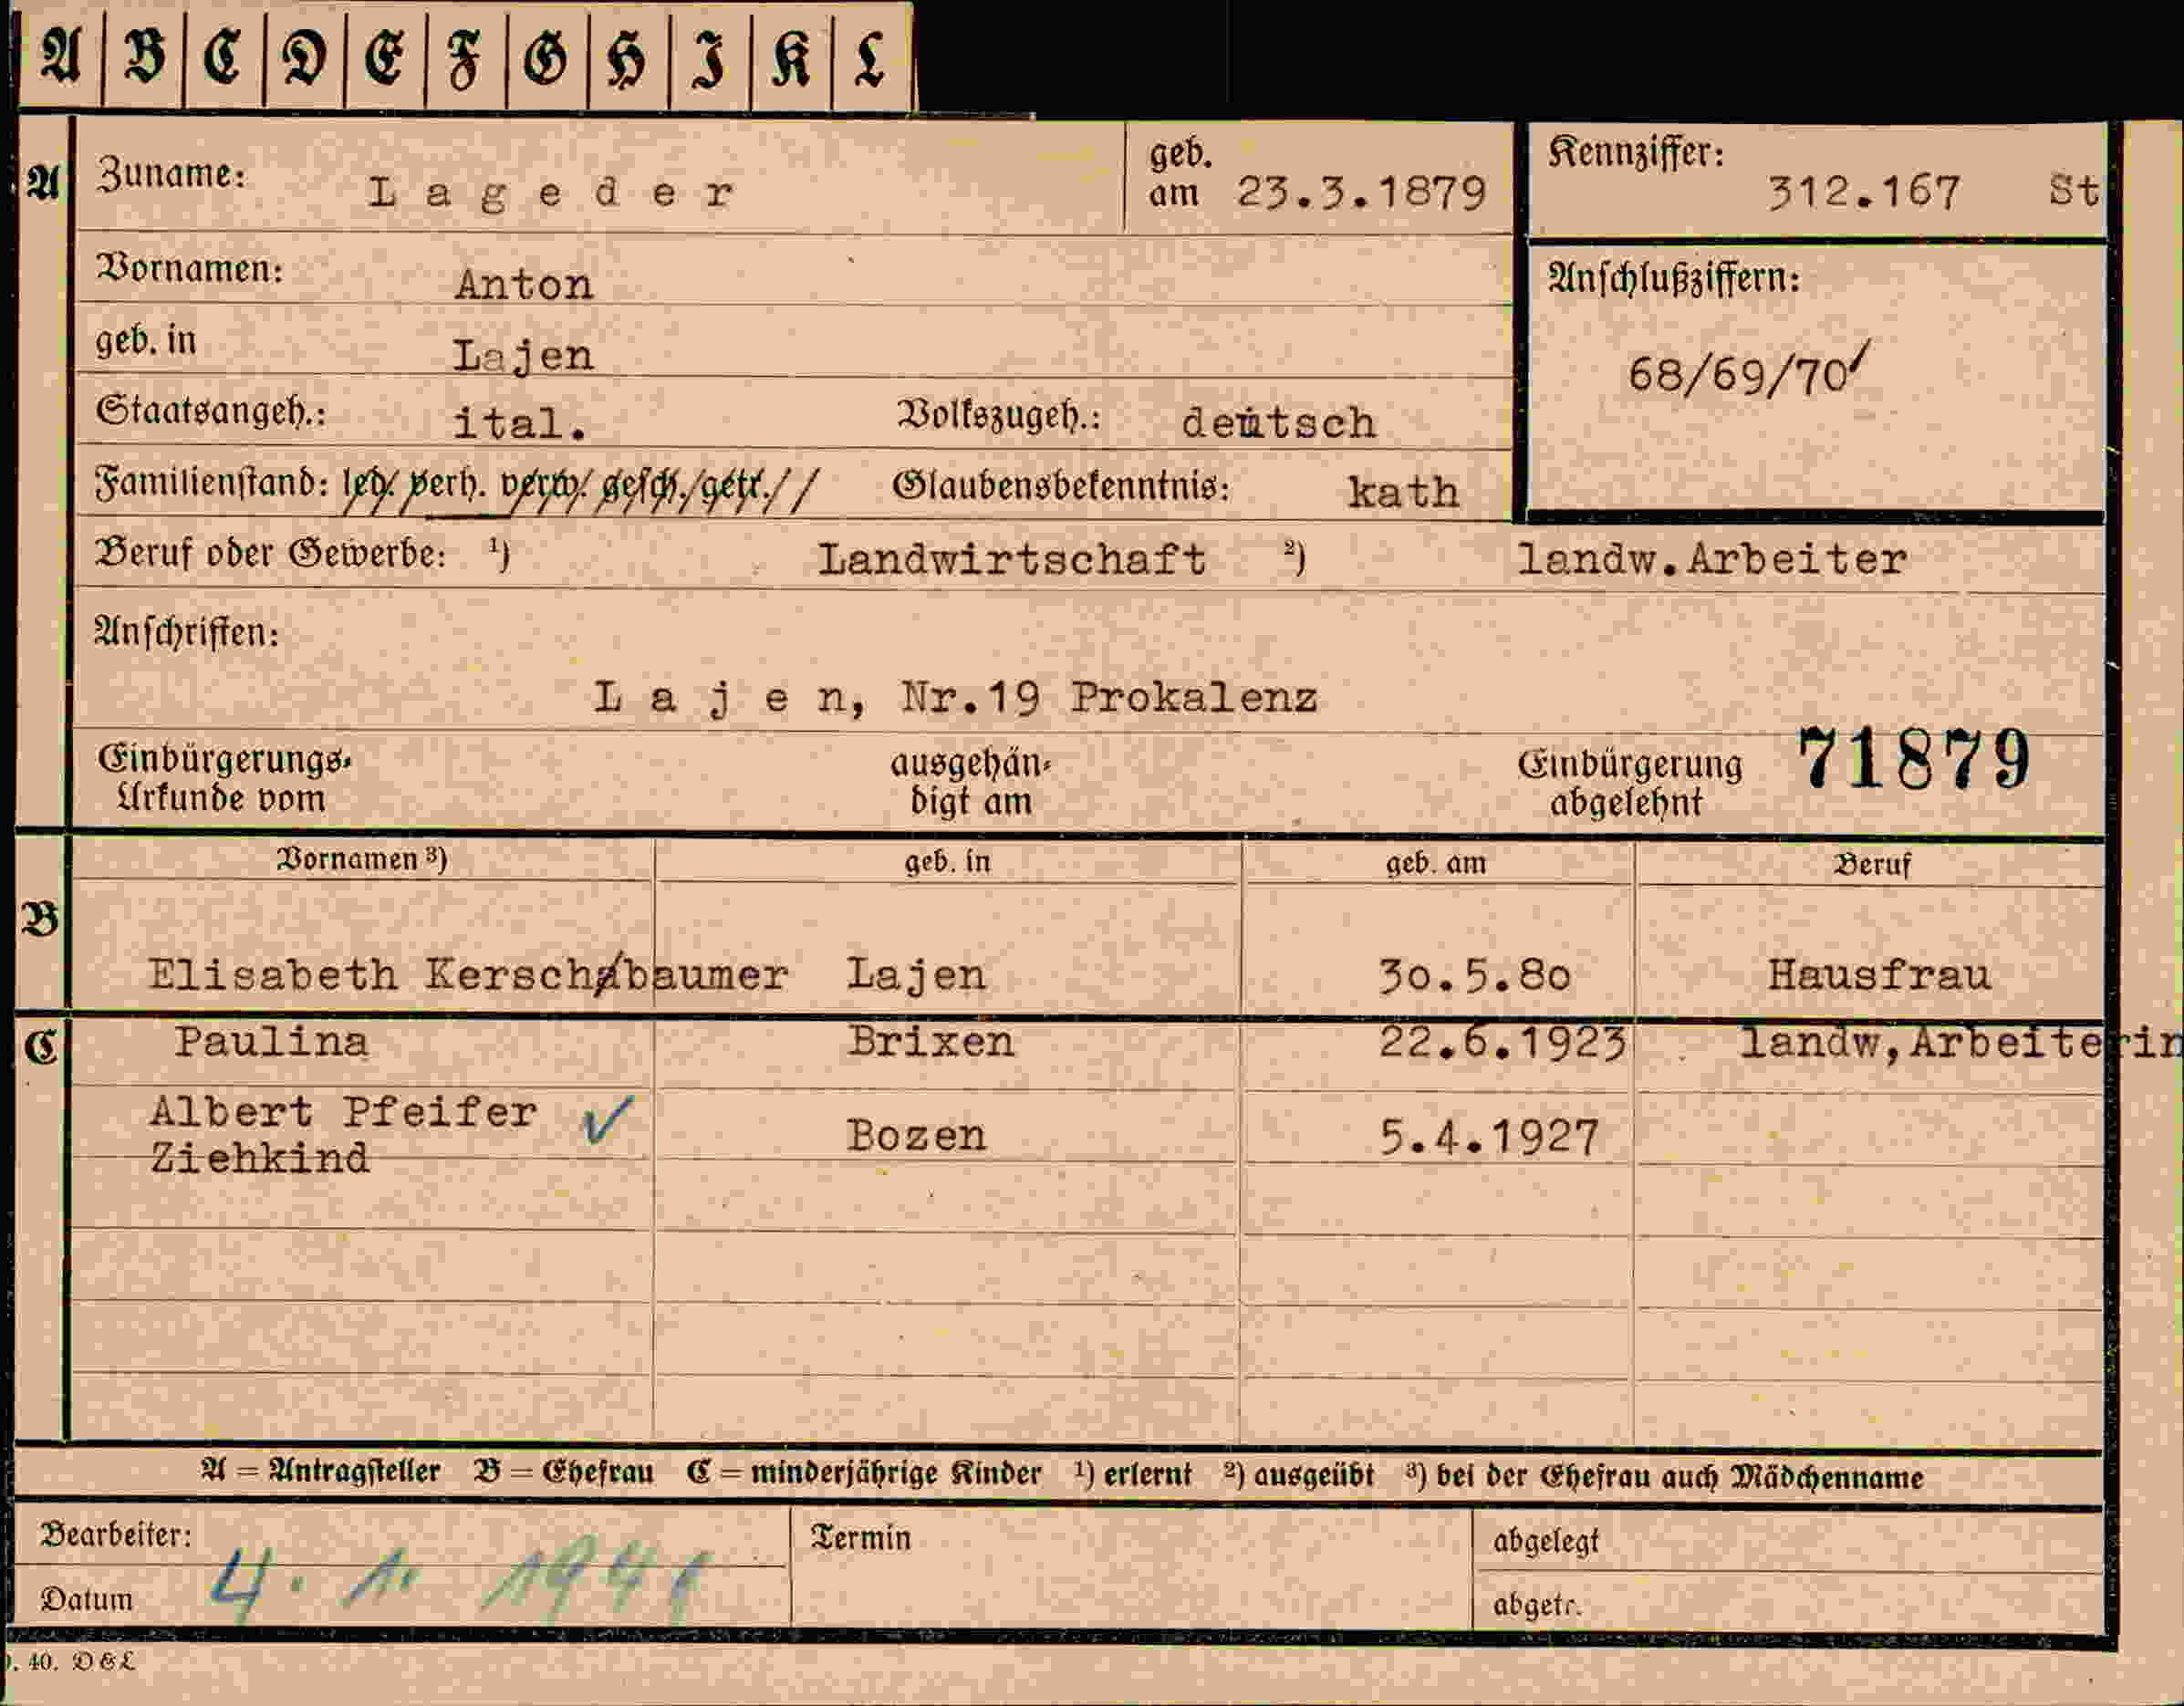 A B C D E F G H I K L
A Zuname: Lageder geb. am 23.3.1879 Kennziffer: 312.167 St
Vornamen: Anton Anschlußziffern:
geb. in Lajen 68/69/70
Staatsangeh.: ital. Volkszugeh.: deutsch
Familienstand: led. verh. verw. gesch. getr. Glaubensbekenntnis: kath
Beruf oder Gewerbe: ¹) Landwirtschaft ²) landw.Arbeiter
Anschriften:
Lajen, Nr.19 Prokalenz
Einbürgerungs- ausgehän- Einbürgerung 71879
Urkunde vom digt am abgelehnt
Vornamen ³) geb. in geb. am Beruf
B
Elisabeth Kerschbaumer Lajen 30.5.80 Hausfrau
C Paulina Brixen 22.6.1923 landw,Arbeiterin
Albert Pfeifer ✓ Bozen 5.4.1927
Ziehkind
A = Antragsteller B = Ehefrau C = minderjährige Kinder ¹) erlernt ²) ausgeübt ³) bei der Ehefrau auch Mädchenname
Bearbeiter: Termin abgelegt
Datum 4. 1. 1941 abgetr.
40. D & L